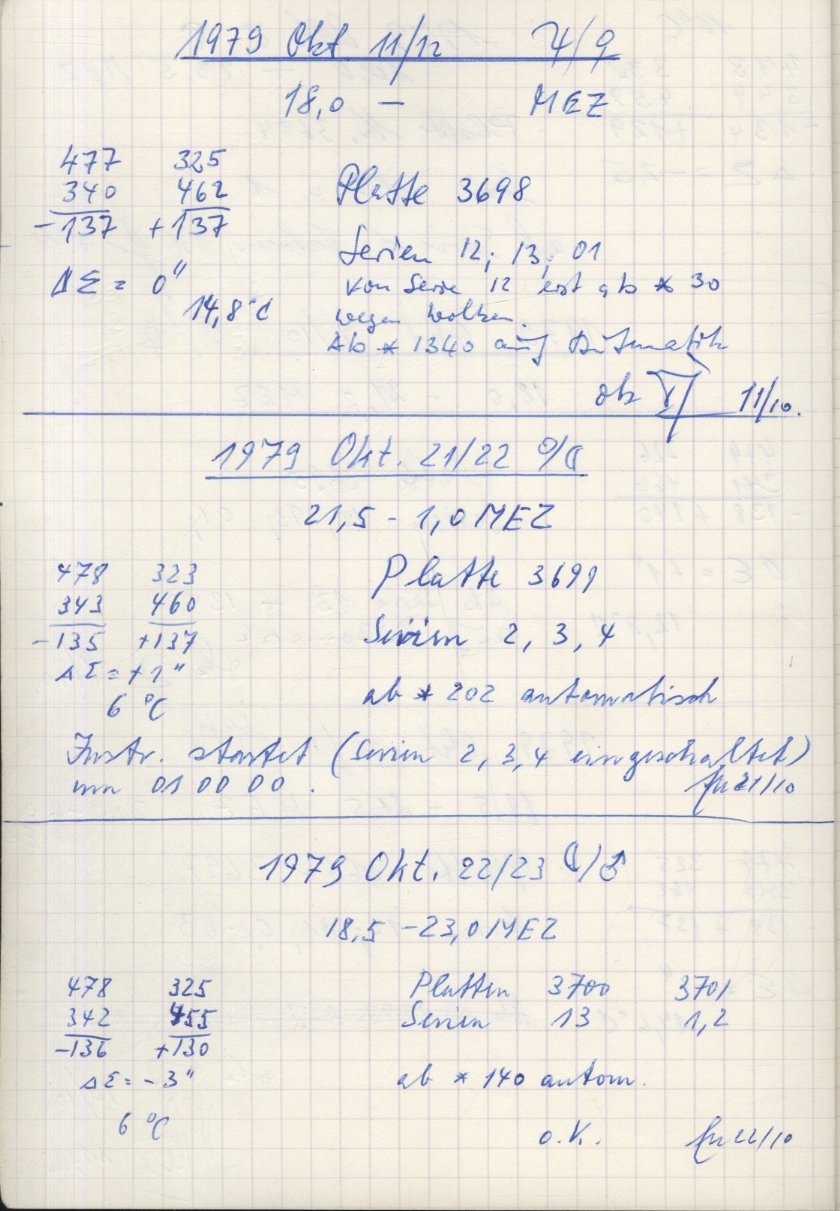 1979 Okt. 11/12 ♃/♀
18,0 — MEZ
477 325
340 462 Platte 3698
-137 +137
Serien 12; 13; 01
ΔΣ = 0"
von Serie 12 erst ab * 30
14,8°C wegen Wolken.
Ab * 1340 auf Automatik
ok 11/10.
1979 Okt. 21/22 ☉/☾
21,5 - 1,0 MEZ
478 323 Platte 3699
343 460
-135 +137 Serien 2, 3, 4
ΔΣ = +1"
6 °C ab * 202 automatisch
Instr. startet (Serien 2, 3, 4 eingeschaltet)
um 01 00 00. 21/10
1979 Okt. 22/23 ☾/♂
18,5 - 23,0 MEZ
478 325 Platten 3700 3701
342 455 Serien 13 1,2
-136 +130
ΔΣ = -3" ab * 140 autom.
6 °C
o.K. 22/10